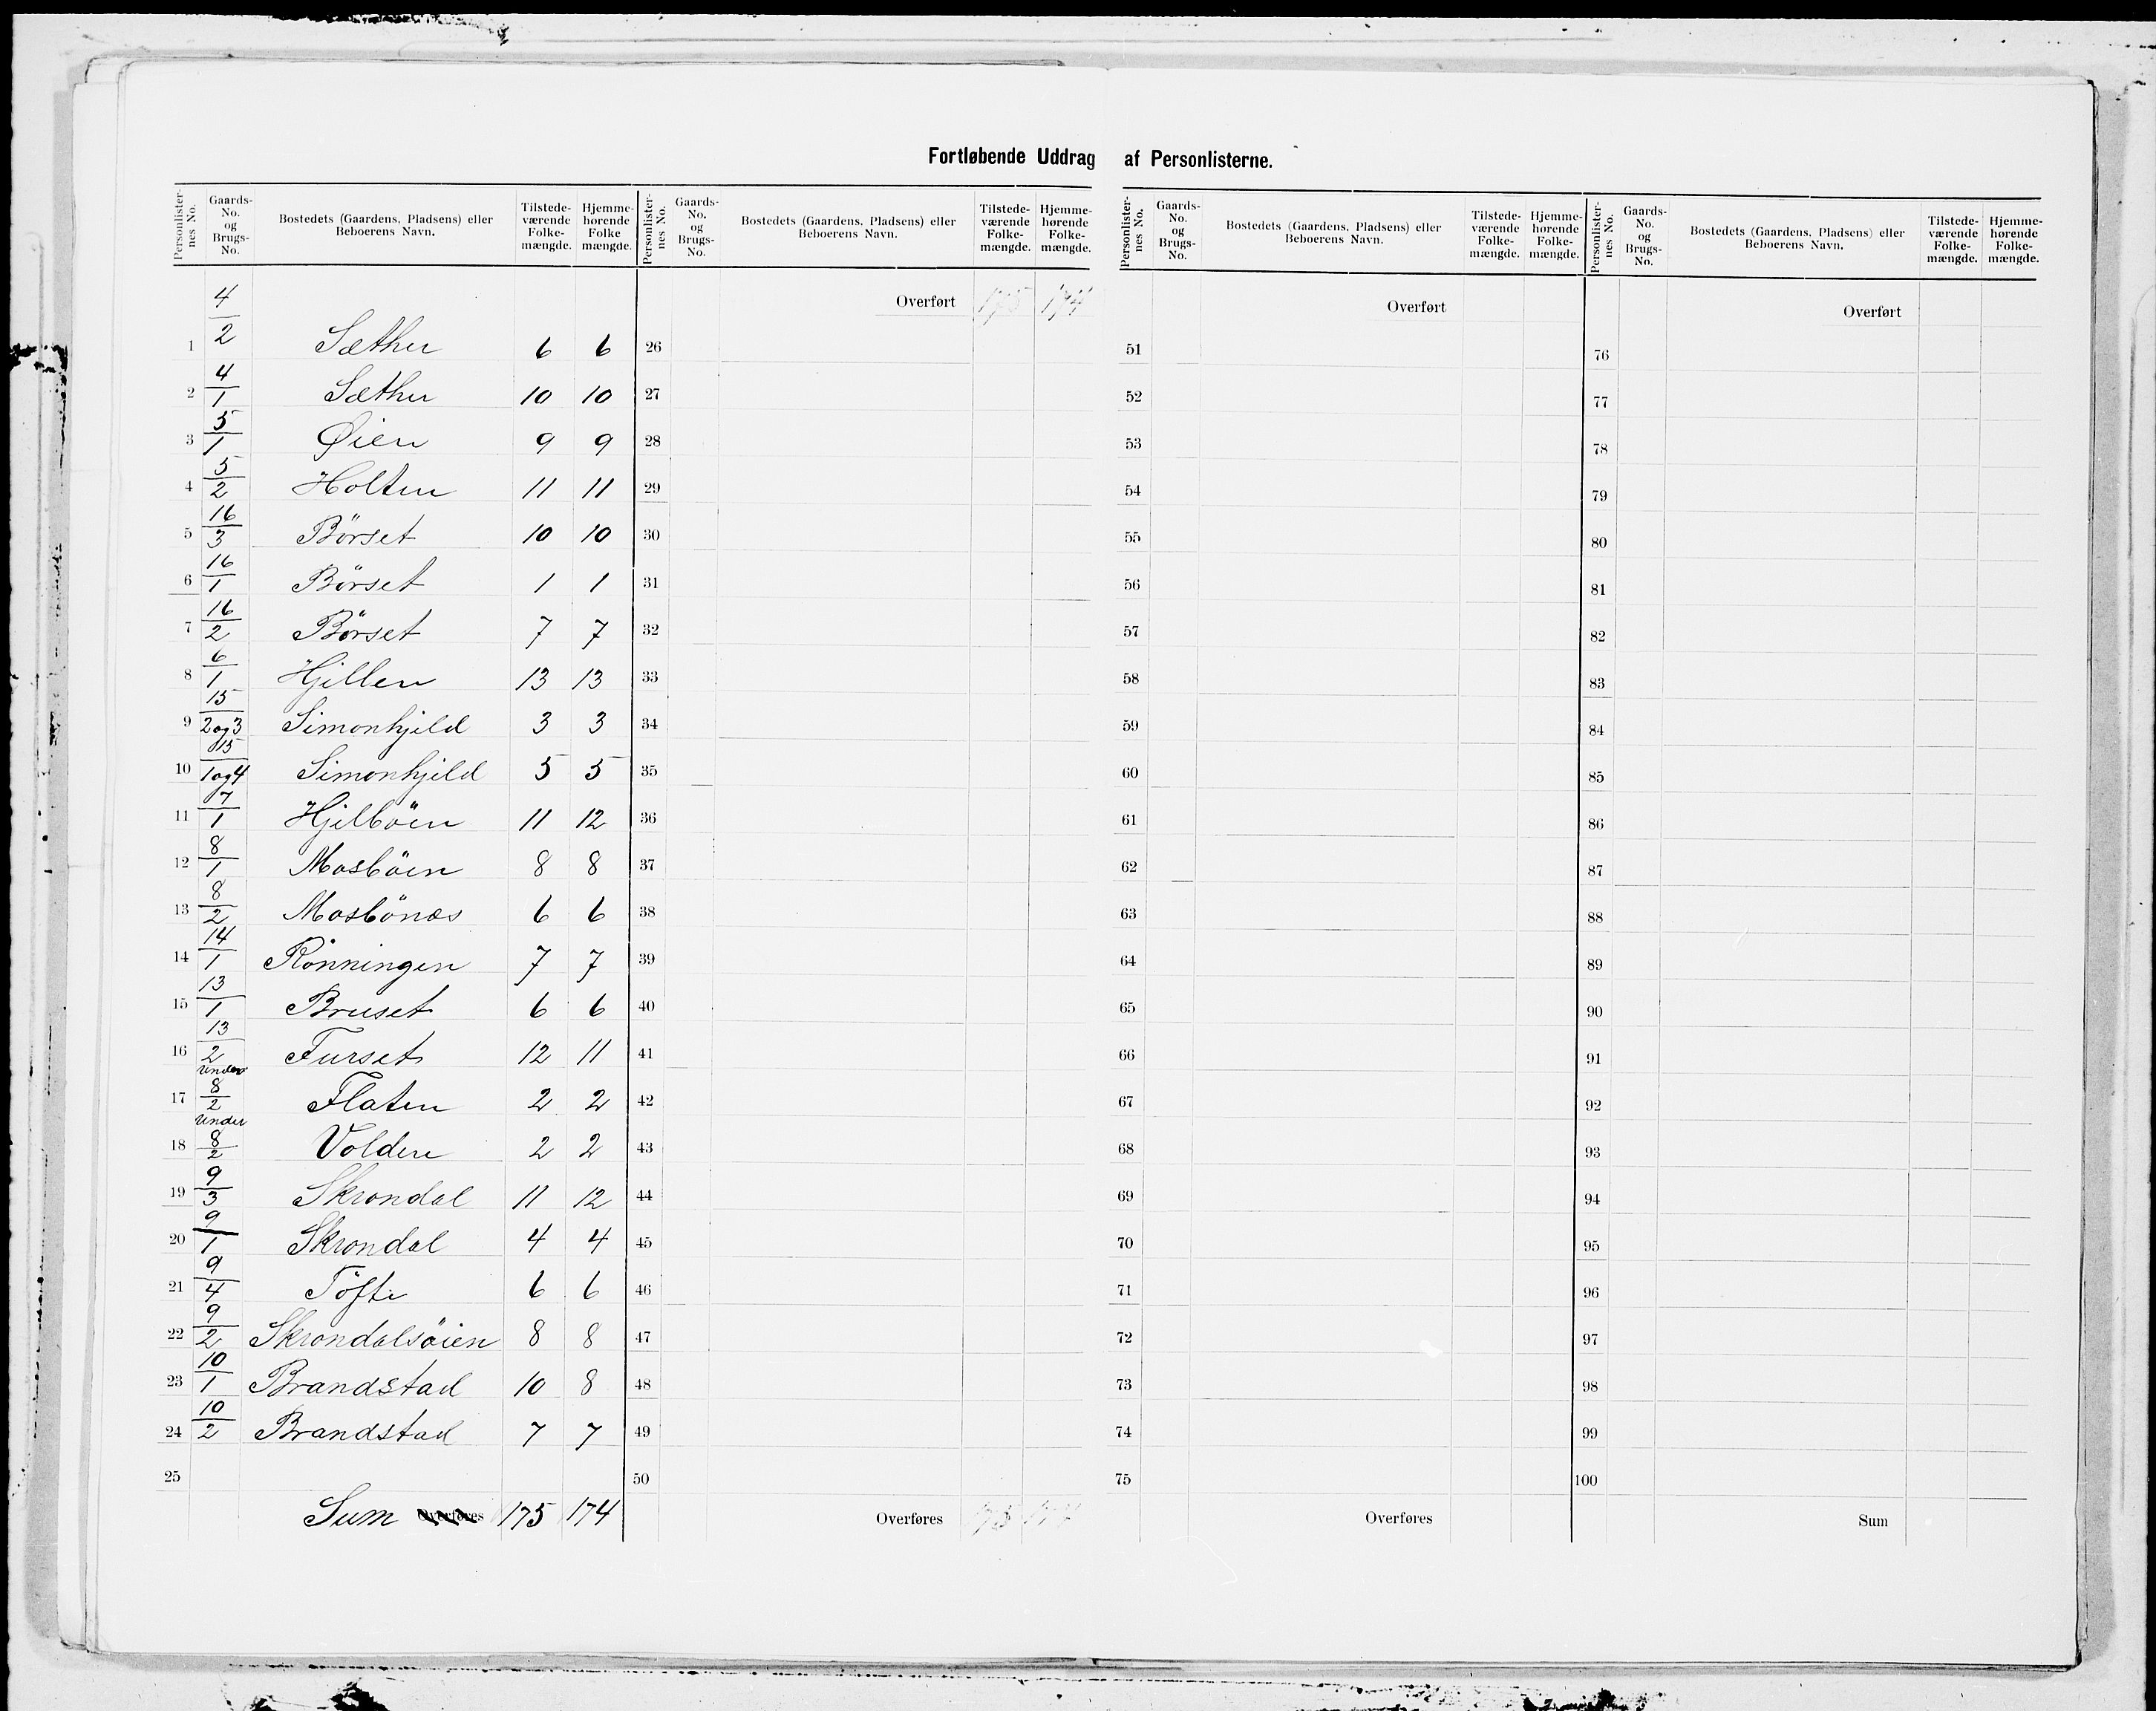 Fortløbende Uddrag af Personlisterne.
Personlister-nes No. Gaards-No. og Brugs-No. Bostedets (Gaardens, Pladsens) eller Beboerens Navn. Tilstede-værende Folke-mængde. Hjemme-hørende Folke mængde.
1 4/2 Sæther 6 6
2 4/1 Sæther 10 10
3 5/1 Øien 9 9
4 5/2 Holten 11 11
5 16/3 Börset 10 10
6 16/1 Börset 1 1
7 16/2 Börset 7 7
8 6/1 Hjillen 13 13
9 15/2og3 Simonhjeld 3 3
10 15/1og4 Simonhjeld 5 5
11 7/1 Hjelböen 11 12
12 8/1 Mosböen 8 8
13 8/2 Mosbönæs 6 6
14 14/1 Rönningen 7 7
15 13/1 Bruset 6 6
16 13/2 Furset 12 11
17 Under 8/2 Flaten 2 2
18 Under 8/2 Volden 2 2
19 9/3 Skrondal 11 12
20 9/1 Skrondal 4 4
21 9/4 Töfte 6 6
22 9/2 Skrondalsöien 8 8
23 10/1 Brandstad 10 8
24 10/2 Brandstad 7 7
25
Sum Overføres 175 174
Personlister-nes No. Gaards-No. og Brugs-No. Bostedets (Gaardens, Pladsens) eller Beboerens Navn. Tilstede-værende Folke-mængde. Hjemme-hørende Folke-mængde.
Overført 175 174
26
27
28
29
30
31
32
33
34
35
36
37
38
39
40
41
42
43
44
45
46
47
48
49
50
Overføres 175 174
Personlister-nes No. Gaards-No. og Brugs-No. Bostedets (Gaardens, Pladsens) eller Beboerens Navn. Tilstede-værende Folke-mængde. Hjemme-hørende Folke-mængde.
Overført
51
52
53
54
55
56
57
58
59
60
61
62
63
64
65
66
67
68
69
70
71
72
73
74
75
Overføres
Personlister-nes No. Gaards-No. og Brugs-No. Bostedets (Gaardens, Pladsens) eller Beboerens Navn. Tilstede-værende Folke-mængde. Hjemme-hørende Folke-mængde.
Overført
76
77
78
79
80
81
82
83
84
85
86
87
88
89
90
91
92
93
94
95
96
97
98
99
100
Sum